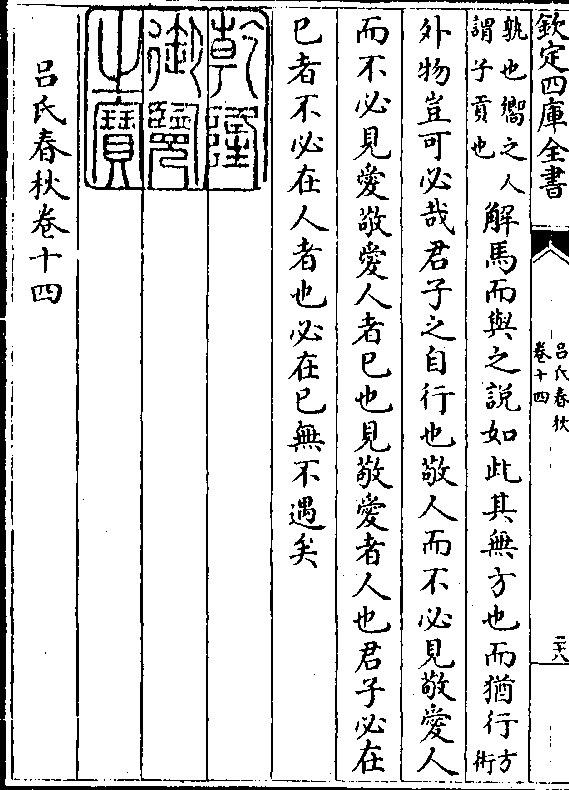 欽定四庫全書
呂氏春秋
卷十四
二十八
孰也嚮之人
謂子貢也
解馬而與之説如此其無方也而猶行
方
術
外物豈可必哉君子之自行也敬人而不必見敬愛人
而不必見愛敬愛人者已也見敬愛者人也君子必在
已者不必在人者也必在已無不遇矣
乾隆
御覽
之寶
呂氏春秋卷十四